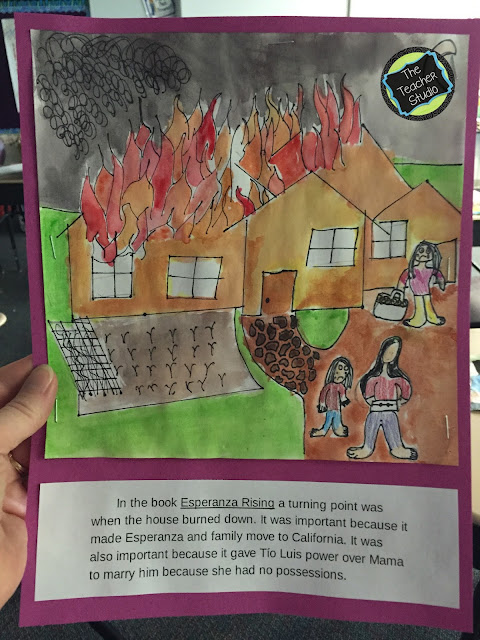 The
Teacher
Studio
In the book Esperanza Rising a turning point was
when the house burned down. It was important because it
made Esperanza and family move to California. It was
also important because it gave Tío Luis power over Mama
to marry him because she had no possessions.